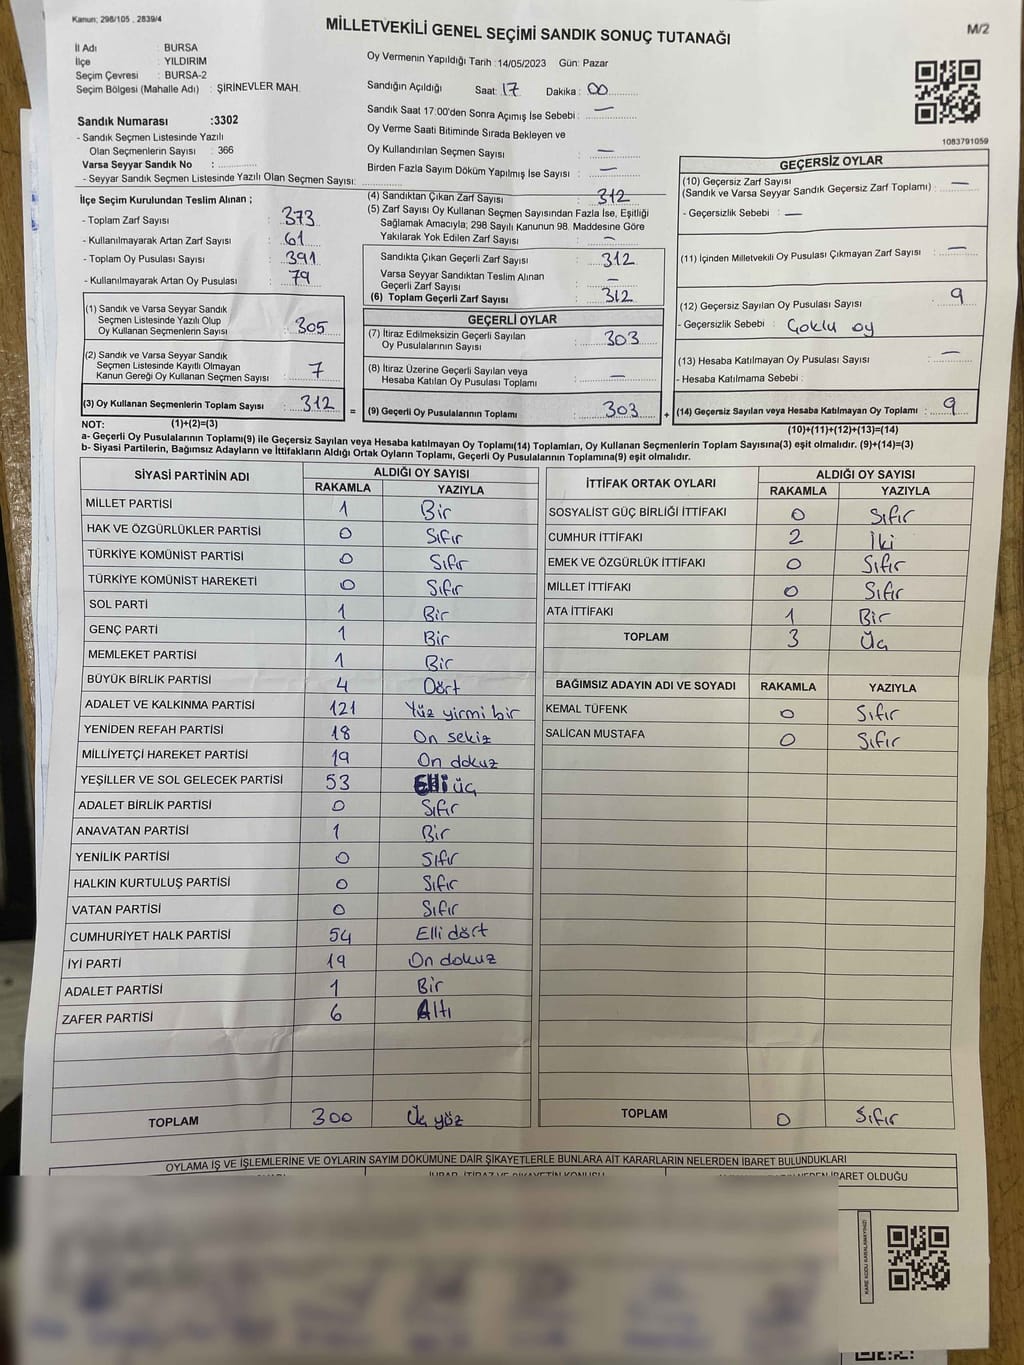 Kanun; 298/105 , 2839/4
MİLLETVEKİLİ GENEL SEÇİMİ SANDIK SONUÇ TUTANAĞI
M/2
İl Adı : BURSA
İlçe : YILDIRIM
Seçim Çevresi : BURSA-2
Seçim Bölgesi (Mahalle Adı) : ŞİRİNEVLER MAH.
Sandık Numarası :3302
- Sandık Seçmen Listesinde Yazılı
Olan Seçmenlerin Sayısı : 366
Varsa Seyyar Sandık No :
- Seyyar Sandık Seçmen Listesinde Yazılı Olan Seçmen Sayısı:
Oy Vermenin Yapıldığı Tarih :14/05/2023 Gün: Pazar
Sandığın Açıldığı Saat: 17 Dakika : 00
Sandık Saat 17:00'den Sonra Açımış İse Sebebi : —
Oy Verme Saati Bitiminde Sırada Bekleyen ve
Oy Kullandırılan Seçmen Sayısı : —
Birden Fazla Sayım Döküm Yapılmış İse Sayısı : —
1083791059
İlçe Seçim Kurulundan Teslim Alınan ;
- Toplam Zarf Sayısı : 373
- Kullanılmayarak Artan Zarf Sayısı : 61
- Toplam Oy Pusulası Sayısı : 391
- Kullanılmayarak Artan Oy Pusulası : 79
(1) Sandık ve Varsa Seyyar Sandık
Seçmen Listesinde Yazılı Olup
Oy Kullanan Seçmenlerin Sayısı : 305
(2) Sandık ve Varsa Seyyar Sandık
Seçmen Listesinde Kayıtlı Olmayan
Kanun Gereği Oy Kullanan Seçmen Sayısı : 7
(3) Oy Kullanan Seçmenlerin Toplam Sayısı : 312 =
(4) Sandıktan Çıkan Zarf Sayısı : 312
(5) Zarf Sayısı Oy Kullanan Seçmen Sayısından Fazla İse, Eşitliği
Sağlamak Amacıyla; 298 Sayılı Kanunun 98. Maddesine Göre
Yakılarak Yok Edilen Zarf Sayısı : —
Sandıkta Çıkan Geçerli Zarf Sayısı : 312
Varsa Seyyar Sandıktan Teslim Alınan
Geçerli Zarf Sayısı : —
(6) Toplam Geçerli Zarf Sayısı : 312
GEÇERLİ OYLAR
(7) İtiraz Edilmeksizin Geçerli Sayılan
Oy Pusulalarının Sayısı : 303
(8) İtiraz Üzerine Geçerli Sayılan veya
Hesaba Katılan Oy Pusulası Toplamı : —
(9) Geçerli Oy Pusulalarının Toplamı : 303 +
GEÇERSİZ OYLAR
(10) Geçersiz Zarf Sayısı
(Sandık ve Varsa Seyyar Sandık Geçersiz Zarf Toplamı) : —
- Geçersizlik Sebebi : —
(11) İçinden Milletvekili Oy Pusulası Çıkmayan Zarf Sayısı : —
(12) Geçersiz Sayılan Oy Pusulası Sayısı : 9
- Geçersizlik Sebebi : Çoklu oy
(13) Hesaba Katılmayan Oy Pusulası Sayısı : —
- Hesaba Katılmama Sebebi :
(14) Geçersiz Sayılan veya Hesaba Katılmayan Oy Toplamı : 9
NOT: (1)+(2)=(3)
(10)+(11)+(12)+(13)=(14)
a- Geçerli Oy Pusulalarının Toplamı(9) ile Geçersiz Sayılan veya Hesaba katılmayan Oy Toplamı(14) Toplamları, Oy Kullanan Seçmenlerin Toplam Sayısına(3) eşit olmalıdır. (9)+(14)=(3)
b- Siyasi Partilerin, Bağımsız Adayların ve İttifakların Aldığı Ortak Oyların Toplamı, Geçerli Oy Pusulalarının Toplamına(9) eşit olmalıdır.
SİYASİ PARTİNİN ADI ALDIĞI OY SAYISI
RAKAMLA YAZIYLA
MİLLET PARTİSİ 1 Bir
HAK VE ÖZGÜRLÜKLER PARTİSİ 0 Sıfır
TÜRKİYE KOMÜNİST PARTİSİ 0 Sıfır
TÜRKİYE KOMÜNİST HAREKETİ 0 Sıfır
SOL PARTİ 1 Bir
GENÇ PARTİ 1 Bir
MEMLEKET PARTİSİ 1 Bir
BÜYÜK BİRLİK PARTİSİ 4 Dört
ADALET VE KALKINMA PARTİSİ 121 Yüz yirmi bir
YENİDEN REFAH PARTİSİ 18 On sekiz
MİLLİYETÇİ HAREKET PARTİSİ 19 On dokuz
YEŞİLLER VE SOL GELECEK PARTİSİ 53 Elli üç
ADALET BİRLİK PARTİSİ 0 Sıfır
ANAVATAN PARTİSİ 1 Bir
YENİLİK PARTİSİ 0 Sıfır
HALKIN KURTULUŞ PARTİSİ 0 Sıfır
VATAN PARTİSİ 0 Sıfır
CUMHURİYET HALK PARTİSİ 54 Elli dört
İYİ PARTİ 19 On dokuz
ADALET PARTİSİ 1 Bir
ZAFER PARTİSİ 6 Altı
TOPLAM 300 Üç yöz
İTTİFAK ORTAK OYLARI ALDIĞI OY SAYISI
RAKAMLA YAZIYLA
SOSYALİST GÜÇ BİRLİĞİ İTTİFAKI 0 Sıfır
CUMHUR İTTİFAKI 2 İki
EMEK VE ÖZGÜRLÜK İTTİFAKI 0 Sıfır
MİLLET İTTİFAKI 0 Sıfır
ATA İTTİFAKI 1 Bir
TOPLAM 3 Üç
BAĞIMSIZ ADAYIN ADI VE SOYADI RAKAMLA YAZIYLA
KEMAL TÜFENK 0 Sıfır
SALİCAN MUSTAFA 0 Sıfır
TOPLAM 0 Sıfır
OYLAMA İŞ VE İŞLEMLERİNE VE OYLARIN SAYIM DÖKÜMÜNE DAİR ŞİKAYETLERLE BUNLARA AİT KARARLARIN NELERDEN İBARET BULUNDUKLARI
İBARET OLDUĞU
KARE KODU KARALAMAYINIZ!